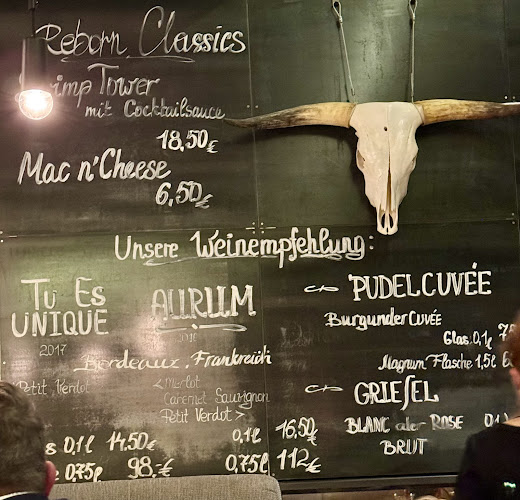 Reborn Classics
Tower
mit Cocktailsauce
18,50€
Mac n'Cheese
6,50€
Unsere Weinempfehlung:
Tu Es
UNIQUE
2017
AURUM
Bordeaux, Frankreich
Petit Verdot
<Merlot
Cabernet Sauvignon
Petit Verdot>
0,1l 14,50€
0,75l 98,-€
0,1l 16,50€
0,75l 112€
PUDELCUVÉE
Burgunder CUVÉE
Glas 0,1l
Magnum Flasche 1,5l
GRIESEL
BLANC oder ROSE
BRUT